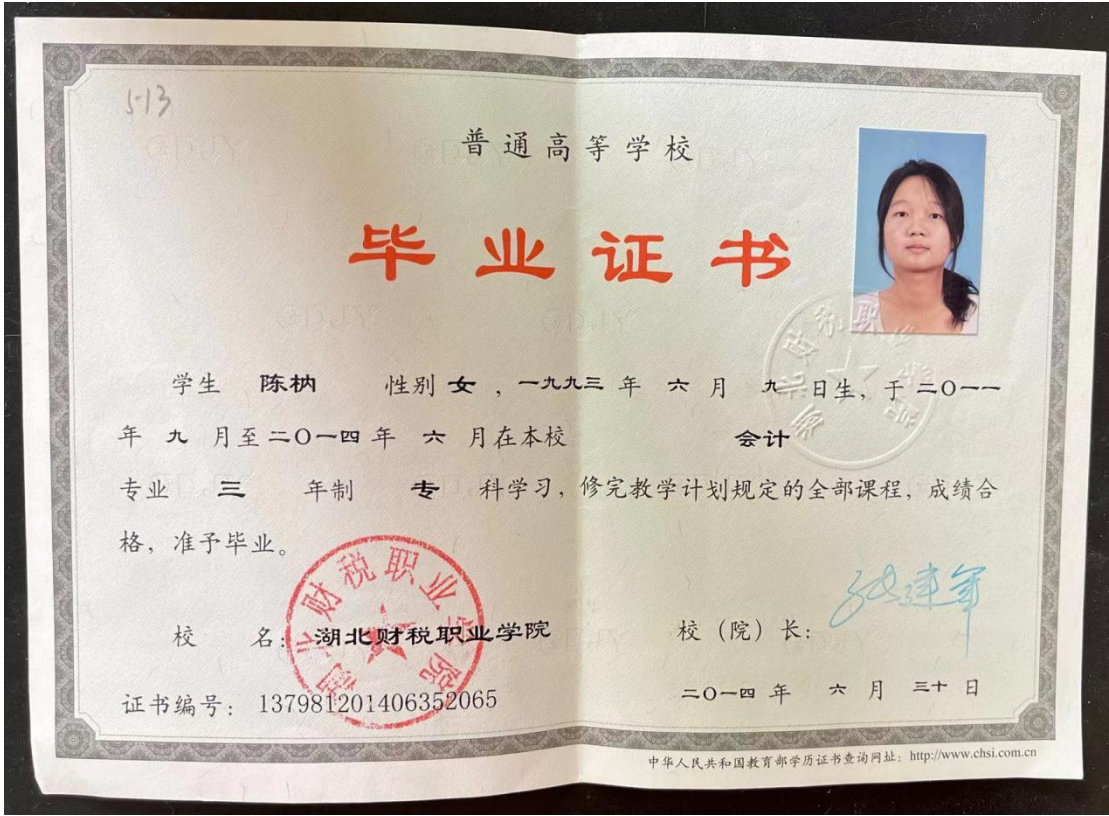 5-13
普通高等学校
毕业证书
学生 陈枘 性别 女 ，一九九三 年 六 月 九 日生，于 二〇一一
年 九 月至 二〇一四 年 六 月在本校 会计
专业 三 年制 专 科学习，修完教学计划规定的全部课程，成绩合
格，准予毕业。
湖北财税职业学院
校 名：湖北财税职业学院 校（院）长：张建军
证书编号：137981201406352065 二〇一四 年 六 月 三十 日
中华人民共和国教育部学历证书查询网址：http://www.chsi.com.cn